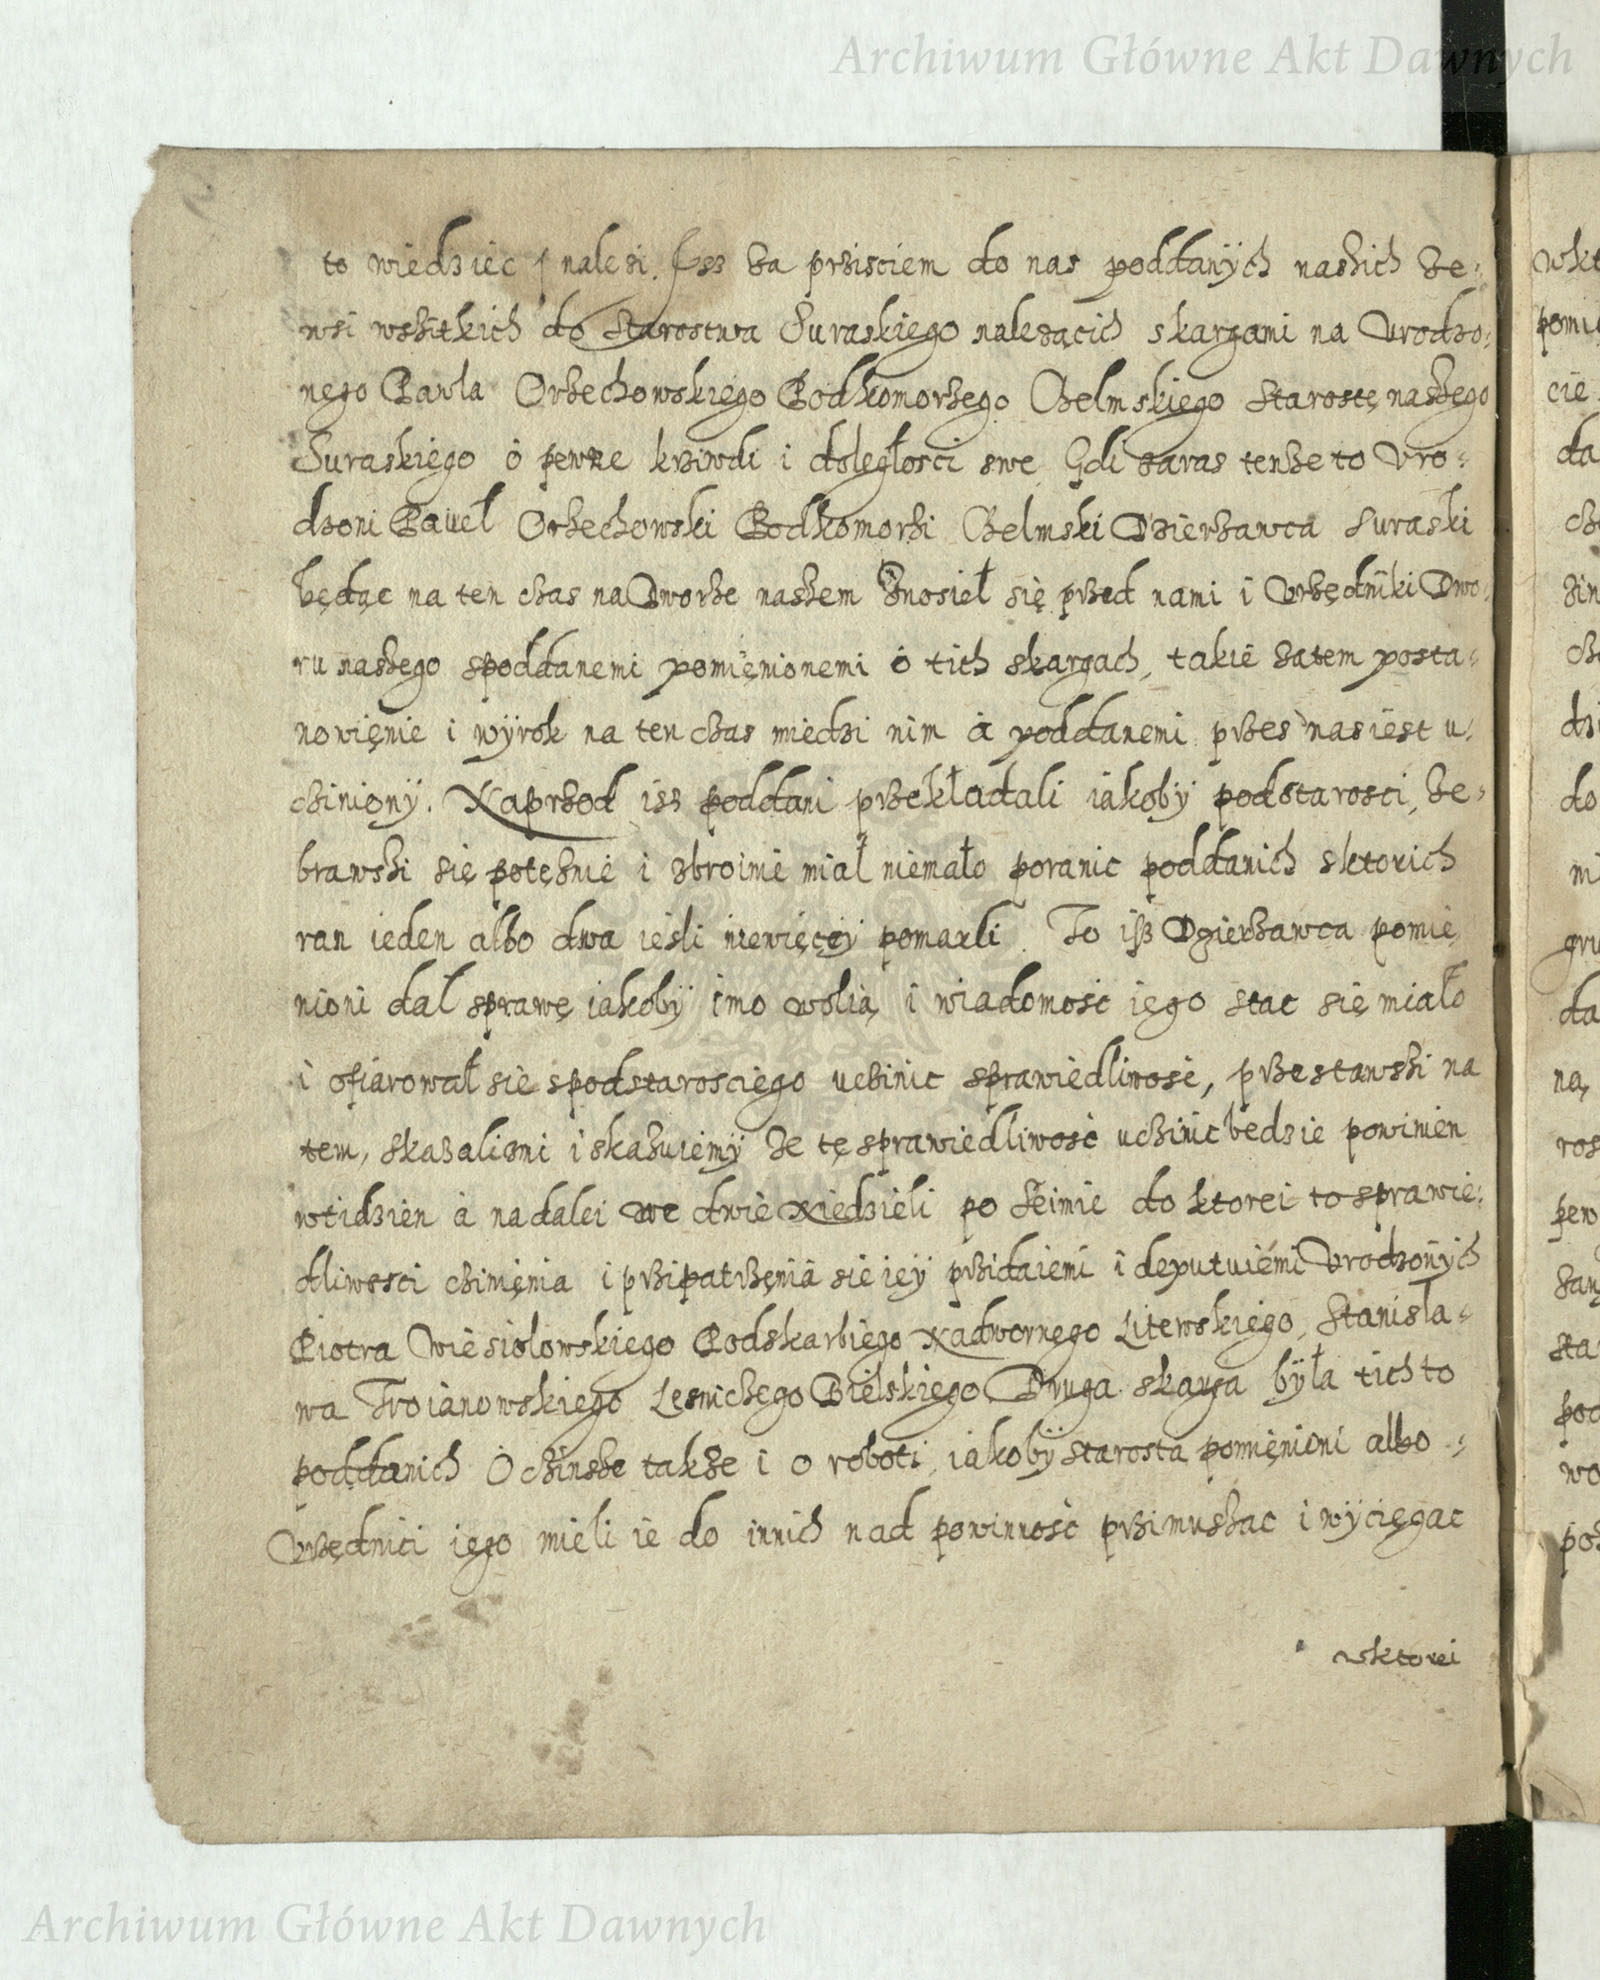 Archiwum Główne Akt Dawnych
to wiedziec nalezi. Isz za prziściem do nas poddanÿch naszich ze-
wsi wszitkich do Starostwa Suraskiego należącich skargami na Vrodzo-
nego Pawla Orzechowskiego Podkomorzego Chelmskiego Starostę naszego
Suraskiego o pewne krziwdi i doległosci swe Gdi zaras tenże to Vro-
dzoni Paweł Orzechowski Podkomorzi Chelmski Dzierżawca Suraski
będąc na ten czas na Dworze naszem Znosieł się przed nami i Vrzędniki Dwo-
ru naszego spoddanemi pomięnionemi o tich skargach, takie zatem posta-
nowięnie i wÿrok na ten czas miedzi nim a poddanemi przes nas iest u-
cziniony. Naprzod isz poddani przekładali iakobÿ podstarosci, Ze-
brawszi się potężnie i zbroinie miał niemało poranic poddanich sktorich
ran ieden albo dwa iesli niewięceÿ pomarli. To isz Dzierżawca pomie
nioni dał sprawę iakobÿ imo wolią i wiadomość iego stac się miało
i ofiarował sie spodstarosciego uczinic sprawiedliwość, przestawszi na
tem, skazalismi i skazuiemÿ że tę sprawiedliwość uczinic bedzie powinien
wtidzien a nadalei we dwie Niedzieli po Seimie do ktorei to sprawie-
dliwosci czinięnia i przipatrzęnia sie ieÿ przidaiemi i deputuiemi Vrodzonÿch
Piotra Wiesiolowskiego Podskarbiego Nadwornego Litewskiego, Stanisła-
wa Troianowskiego Lesniczego Bielskiego Druga skarga była tich to
poddanich O czinsze także i o roboti, iakobÿ starosta pomięnioni albo -
Vrzędnici iego mieli ie do innich nad powinność przimuszac i wÿcięgac
wktorei
Archiwum Główne Akt Dawnych